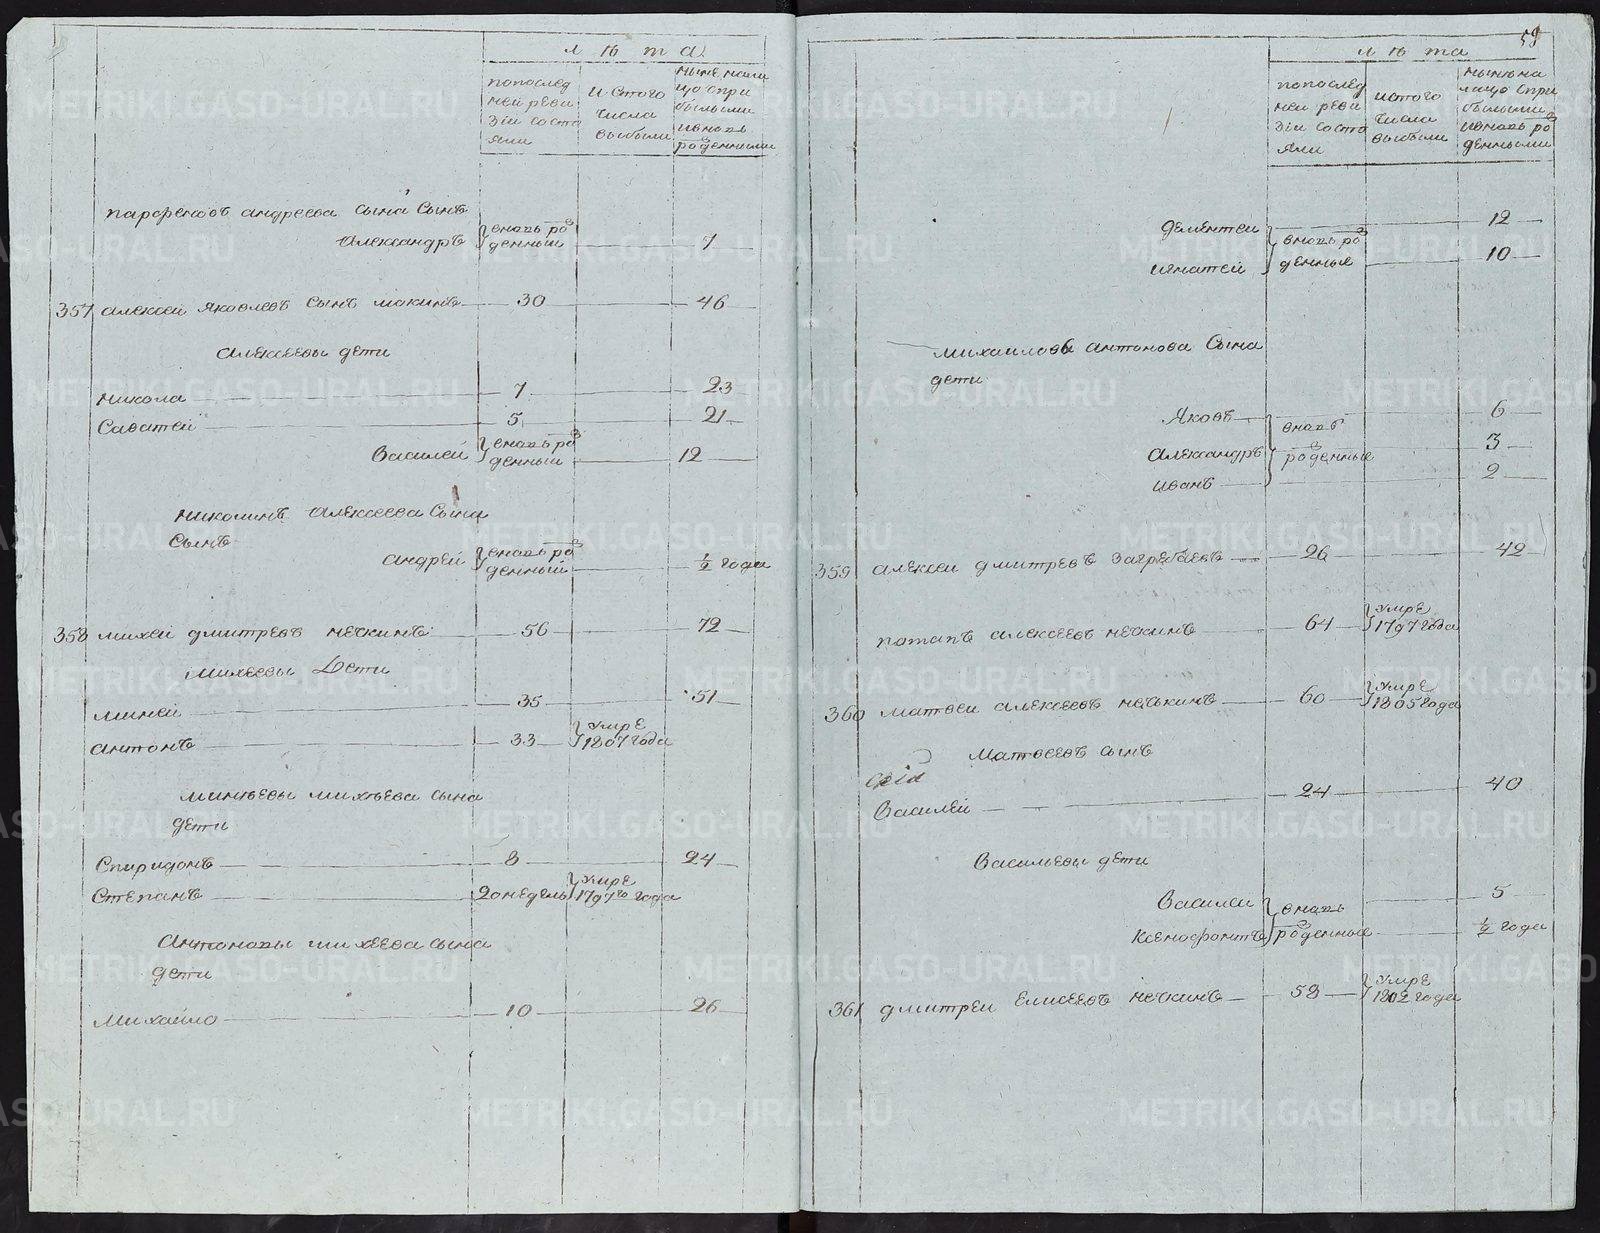 лѣта
попослед
ней реви
зіи состо
яли
истого
числа
выбыли
ныне нали
цо спри
былыми
ивновь
рожденными
парфеновъ андреева сына сынъ
Александръ вновь ро
денный 7
357 алексей яковлевъ сынъ мокинъ 30 46
алексеевы дети
никола 7 23
Саватей 5 21
Василей вновь ро
денный 12
николинъ алексеева сына
сынъ
андрей вновь ро
денный ½ года
358 михей дмитревъ нечкинъ 56 72
михеевы Дети
миней 35 51
антонъ 33 умре
1807 года
минѣевы михѣева сына
дети
Спиридонъ 8 24
Степанъ 20 недель умре
1797 года
Антоновы михеева сына
дети
михайло 10 26
59
лѣта
попослед
ней реви
зіи состо
яли
истого
числа
выбыли
нынѣ на
лицо спри
былыми
ивновь ро
денными
дементеи 12
вновь ро
денные
игнатей 10
михаиловы антонова Сына
дети
Яковъ 6
вновь
Александръ роденные 3
иванъ 2
359 алексеи дмитревъ Загребаевъ 26 42
потапъ алексеевъ нечкинъ 64 умре
1797 года
360 матвеи алексеевъ нечкинъ 60 умре
1805 года
матвеевъ сынъ
Василей 24 40
Васильевы дети
Василеи вновь 5
Ксенофонтъ роденные ½ года
361 дмитреи Елисеевъ нечкинъ 58 умре
1802 года
METRIKI.GASO-URAL.RU